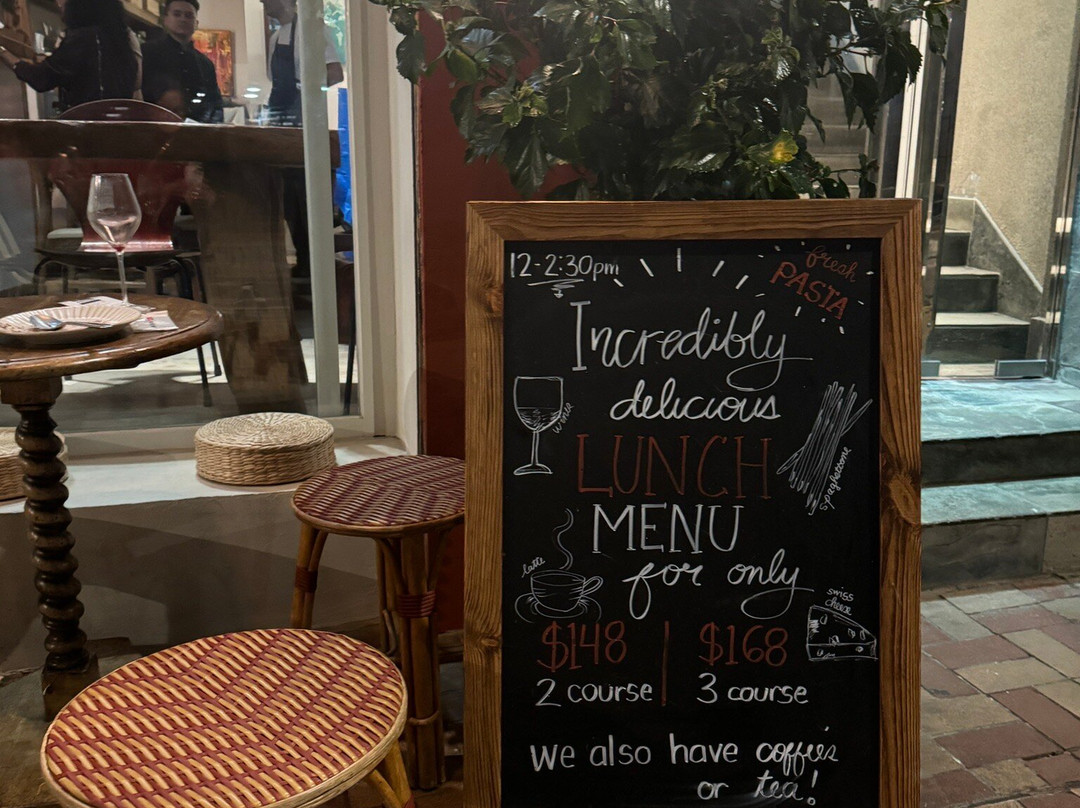 12-2:30pm
fresh
PASTA
Incredibly
delicious
wine
LUNCH
spaghettone
MENU
latte
for only
swiss
cheese
$148 | $168
2 course 3 course
we also have coffées
or tea!